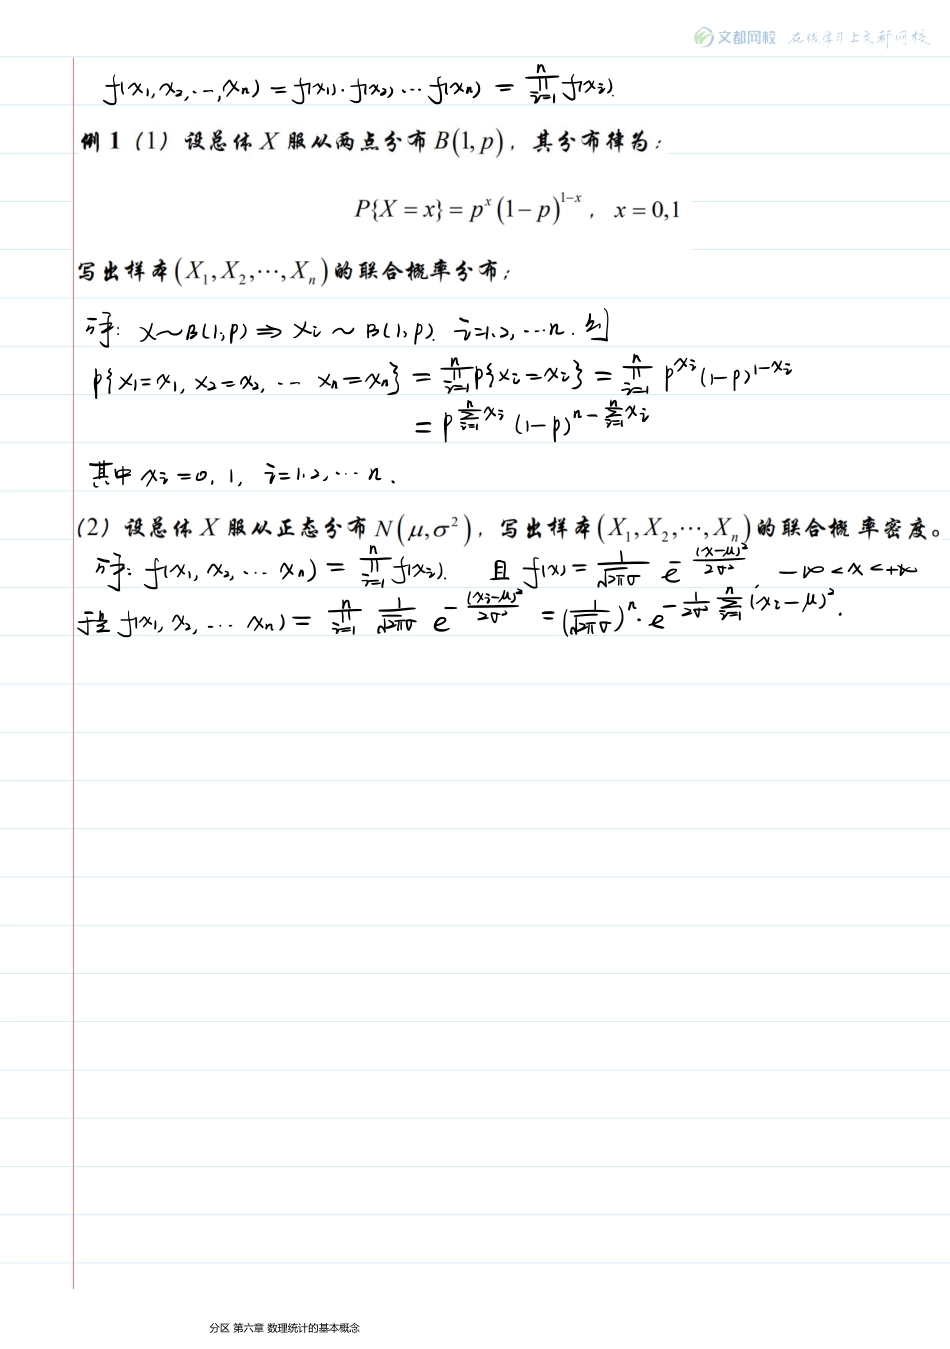 文都网校 在线学习上文都网校
f(x₁,x₂,…,xₙ)=f(x₁)·f(x₂)…f(xₙ) = ∏ᵢ₌₁ⁿ f(xᵢ).
例 1（1）设总体 X 服从两点分布 B(1, p)，其分布律为：
P{X = x} = pˣ (1− p)¹⁻ˣ，x = 0,1
写出样本(X₁, X₂,⋯, Xₙ)的联合概率分布；
解: X~B(1,p) ⇒ Xᵢ ~ B(1,p). i=1,2,…n. 则
p{X₁=x₁, X₂=x₂, … Xₙ=xₙ} = ∏ᵢ₌₁ⁿ p{Xᵢ=xᵢ} = ∏ᵢ₌₁ⁿ p^{xᵢ}(1-p)^{1-xᵢ}
= p^{∑ᵢ₌₁ⁿ xᵢ} (1-p)^{n-∑ᵢ₌₁ⁿ xᵢ}
其中 xᵢ=0, 1, i=1,2,…n.
(2）设总体 X 服从正态分布 N(μ,σ²)，写出样本(X₁, X₂,⋯, Xₙ)的联合概率密度。
解: f(x₁, x₂, … xₙ) = ∏ᵢ₌₁ⁿ f(xᵢ). 且 f(x) = 1/(√2π σ) e^{-(x-μ)²/2σ²} -∞<x<+∞
于是 f(x₁, x₂, … xₙ) = ∏ᵢ₌₁ⁿ 1/(√2π σ) e^{-(xᵢ-μ)²/2σ²} = (1/(√2π σ))ⁿ · e^{-1/2σ² ∑ᵢ₌₁ⁿ (xᵢ-μ)²}.
分区 第六章 数理统计的基本概念